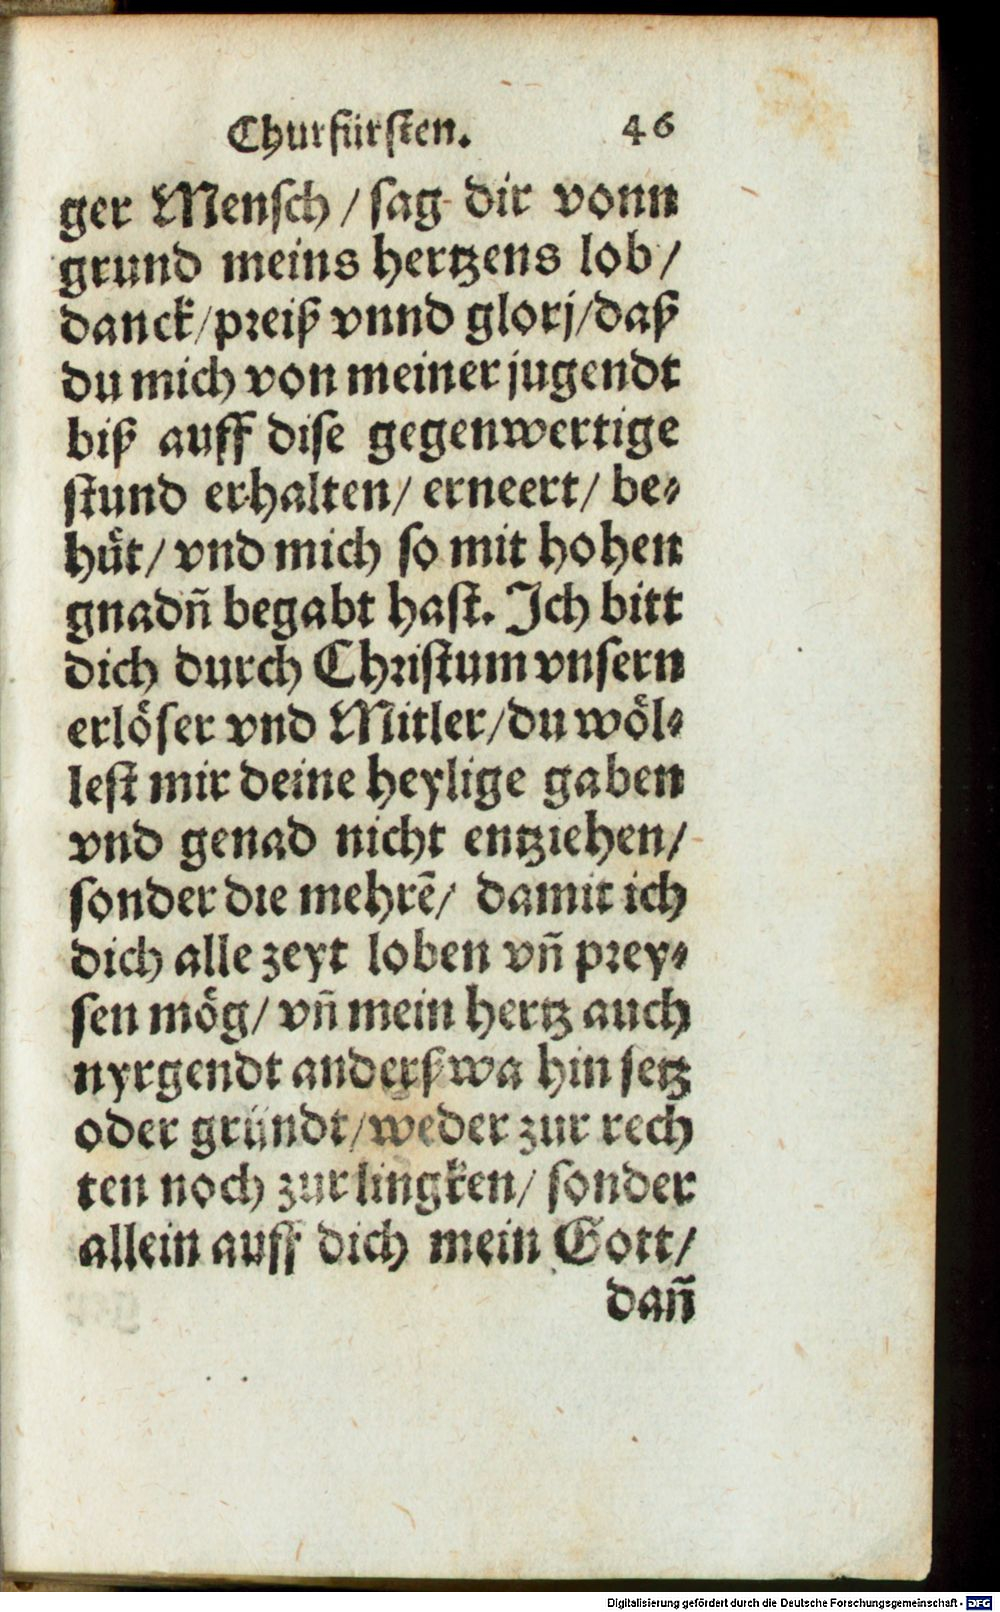 Churfürsten. 46
ger Mensch / sag dir vonn
grund meins hertzens lob /
danck / preiß vnnd glorj / daß
du mich von meiner jugendt
biß auff dise gegenwertige
stund erhalten / erneert / be⸗
huͤt / vnd mich so mit hohen
gnadn̄ begabt hast. Ich bitt
dich durch Christum vnsern
erlöser vnd Mitler / du wöl⸗
lest mir deine heylige gaben
vnd genad nicht entziehen /
sonder die mehrē / damit ich
dich alle zeyt loben vn̄ prey⸗
sen mög / vn̄ mein hertz auch
nyrgendt anderß wa hin setz
oder gründt / weder zur rech
ten noch zur lingken / sonder
allein auff dich mein Gott /
dan̄
Digitalisierung gefördert durch die Deutsche Forschungsgemeinschaft - DFG